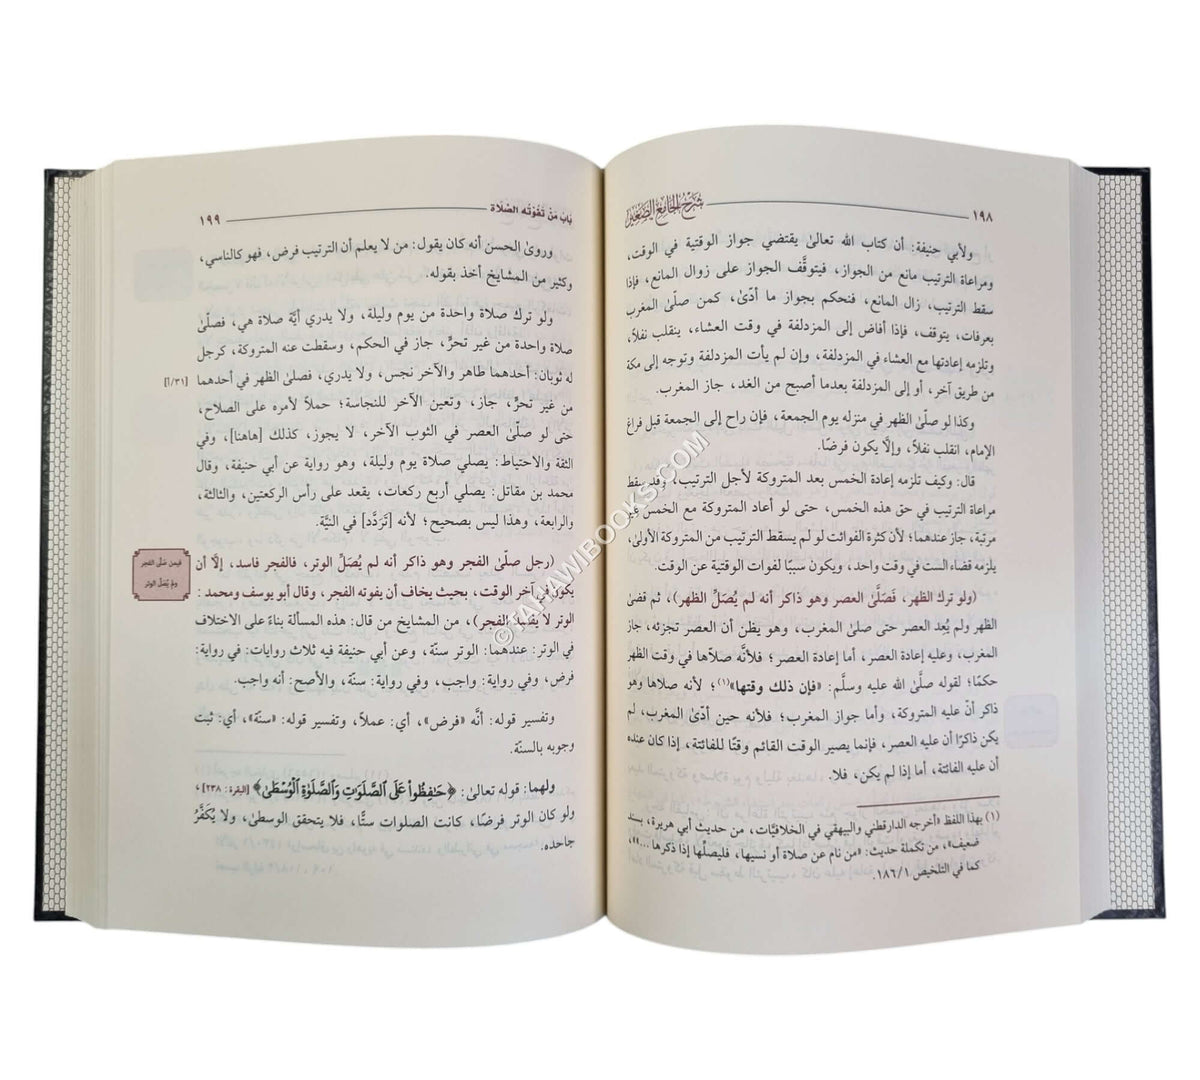 شرح الجامع الصغير ١٩٨
ولأبي حنيفة: أن كتاب الله تعالىٰ يقتضي جواز الوقتية في الوقت،
ومراعاة الترتيب مانع من الجواز، فيتوقَّف الجواز على زوال المانع، فإذا
سقط الترتيب، زال المانع، فنحكم بجواز ما أدّىٰ، كمن صلّىٰ المغرب
بعرفات، يتوقف، فإذا أفاض إلى المزدلفة في وقت العشاء، ينقلب نفلاً،
وتلزمه إعادتها مع العشاء في المزدلفة، وإن لم يأت المزدلفة وتوجه إلى مكة
من طريق آخر، أو إلى المزدلفة بعدما أصبح من الغد، جاز المغرب.
وكذا لو صلّىٰ الظهر في منزله يوم الجمعة، فإن راح إلى الجمعة قبل فراغ
الإمام، انقلب نفلاً، وإلَّا يكون فرضًا.
قال: وكيف تلزمه إعادة الخمس بعد المتروكة لأجل الترتيب، وقد سقط
مراعاة الترتيب في حق هذه الخمس، حتى لو أعاد المتروكة مع الخمس غير
مرتبة، جاز عندهما؛ لأن كثرة الفوائت لو لم يسقط الترتيب من المتروكة الأولىٰ،
يلزمه قضاء الست في وقت واحد، ويكون سببًا لفوات الوقتية عن الوقت.
(ولو ترك الظهر، فَصَلَّىٰ العصر وهو ذاكر أنه لم يُصَلِّ الظهر)، ثم قضىٰ
الظهر ولم يُعِد العصر حتى صلىٰ المغرب، وهو يظن أن العصر تجزئه، جاز
المغرب، وعليه إعادة العصر، أما إعادة العصر؛ فلأنَّه صلاّها في وقت الظهر
حكمًا؛ لقوله صلَّى الله عليه وسلَّم: «فإن ذلك وقتها»(١)؛ لأنه صلاها وهو
ذاكر أنّ عليه المتروكة، وأما جواز المغرب؛ فلأنه حين أدّىٰ المغرب، لم
يكن ذاكرًا أن عليه العصر، فإنما يصير الوقت القائم وقتًا للفائتة، إذا كان عنده
أن عليه الفائتة، أما إذا لم يكن، فلا.
(١) بهذا اللفظ «أخرجه الدارقطني والبيهقي في الخلافيَّات، من حديث أبي هريرة، بسند
ضعيف»، من تكملة حديث: «من نام عن صلاة أو نسيها، فليصلِّها إذا ذكرها ...»،
كما في التلخيص ١٨٦/١.
باب مَنْ تَفُوْتُه الصَّلاَة ١٩٩
وروىٰ الحسن أنه كان يقول: من لا يعلم أن الترتيب فرض، فهو كالناسي،
وكثير من المشايخ أخذ بقوله.
ولو ترك صلاة واحدة من يوم وليلة، ولا يدري أيَّة صلاة هي، فصلّىٰ
صلاة واحدة من غير تحرٍّ، جاز في الحكم، وسقطت عنه المتروكة، كرجل
له ثوبان: أحدهما طاهر والآخر نجس، ولا يدري، فصلى الظهر في أحدهما [٣١/أ]
من غير تحرٍّ، جاز، وتعين الآخر للنجاسة؛ حملاً لأمره على الصلاح،
حتى لو صلّىٰ العصر في الثوب الآخر، لا يجوز، كذلك [هاهنا]، وفي
الثقة والاحتياط: يصلي صلاة يوم وليلة، وهو رواية عن أبي حنيفة، وقال
محمد بن مقاتل: يصلي أربع ركعات، يقعد على رأس الركعتين، والثالثة،
والرابعة، وهذا ليس بصحيح؛ لأنه [تَرَدَّد] في النيَّة.
(رجل صلّىٰ الفجر وهو ذاكر أنه لم يُصَلِّ الوتر، فالفجر فاسد، إلاَّ أن
يكون في آخر الوقت، بحيث يخاف أن يفوته الفجر، وقال أبو يوسف ومحمد:
الوتر لا يفسد الفجر)، من المشايخ من قال: هذه المسألة بناءً على الاختلاف
في الوتر: عندهما: الوتر سنّة، وعن أبي حنيفة فيه ثلاث روايات: في رواية:
فرض، وفي رواية: واجب، وفي رواية: سنّة، والأصح: أنه واجب.
فيمن صَلَّىٰ الفجر
ولم يُصَلِّ الوتر
وتفسير قوله: أنَّه «فرض»، أي: عملاً، وتفسير قوله: «سنّة»، أي: ثبت
وجوبه بالسنّة.
ولهما: قوله تعالىٰ: ﴿حَٰفِظُوا۟ عَلَى ٱلصَّلَوَٰتِ وَٱلصَّلَوٰةِ ٱلْوُسْطَىٰ﴾ [البقرة: ٢٣٨]،
ولو كان الوتر فرضًا، كانت الصلوات ستًّا، فلا يتحقق الوسطىٰ، ولا يُكَفَّرُ
جاحده.
©TAHAWIBOOKS.COM